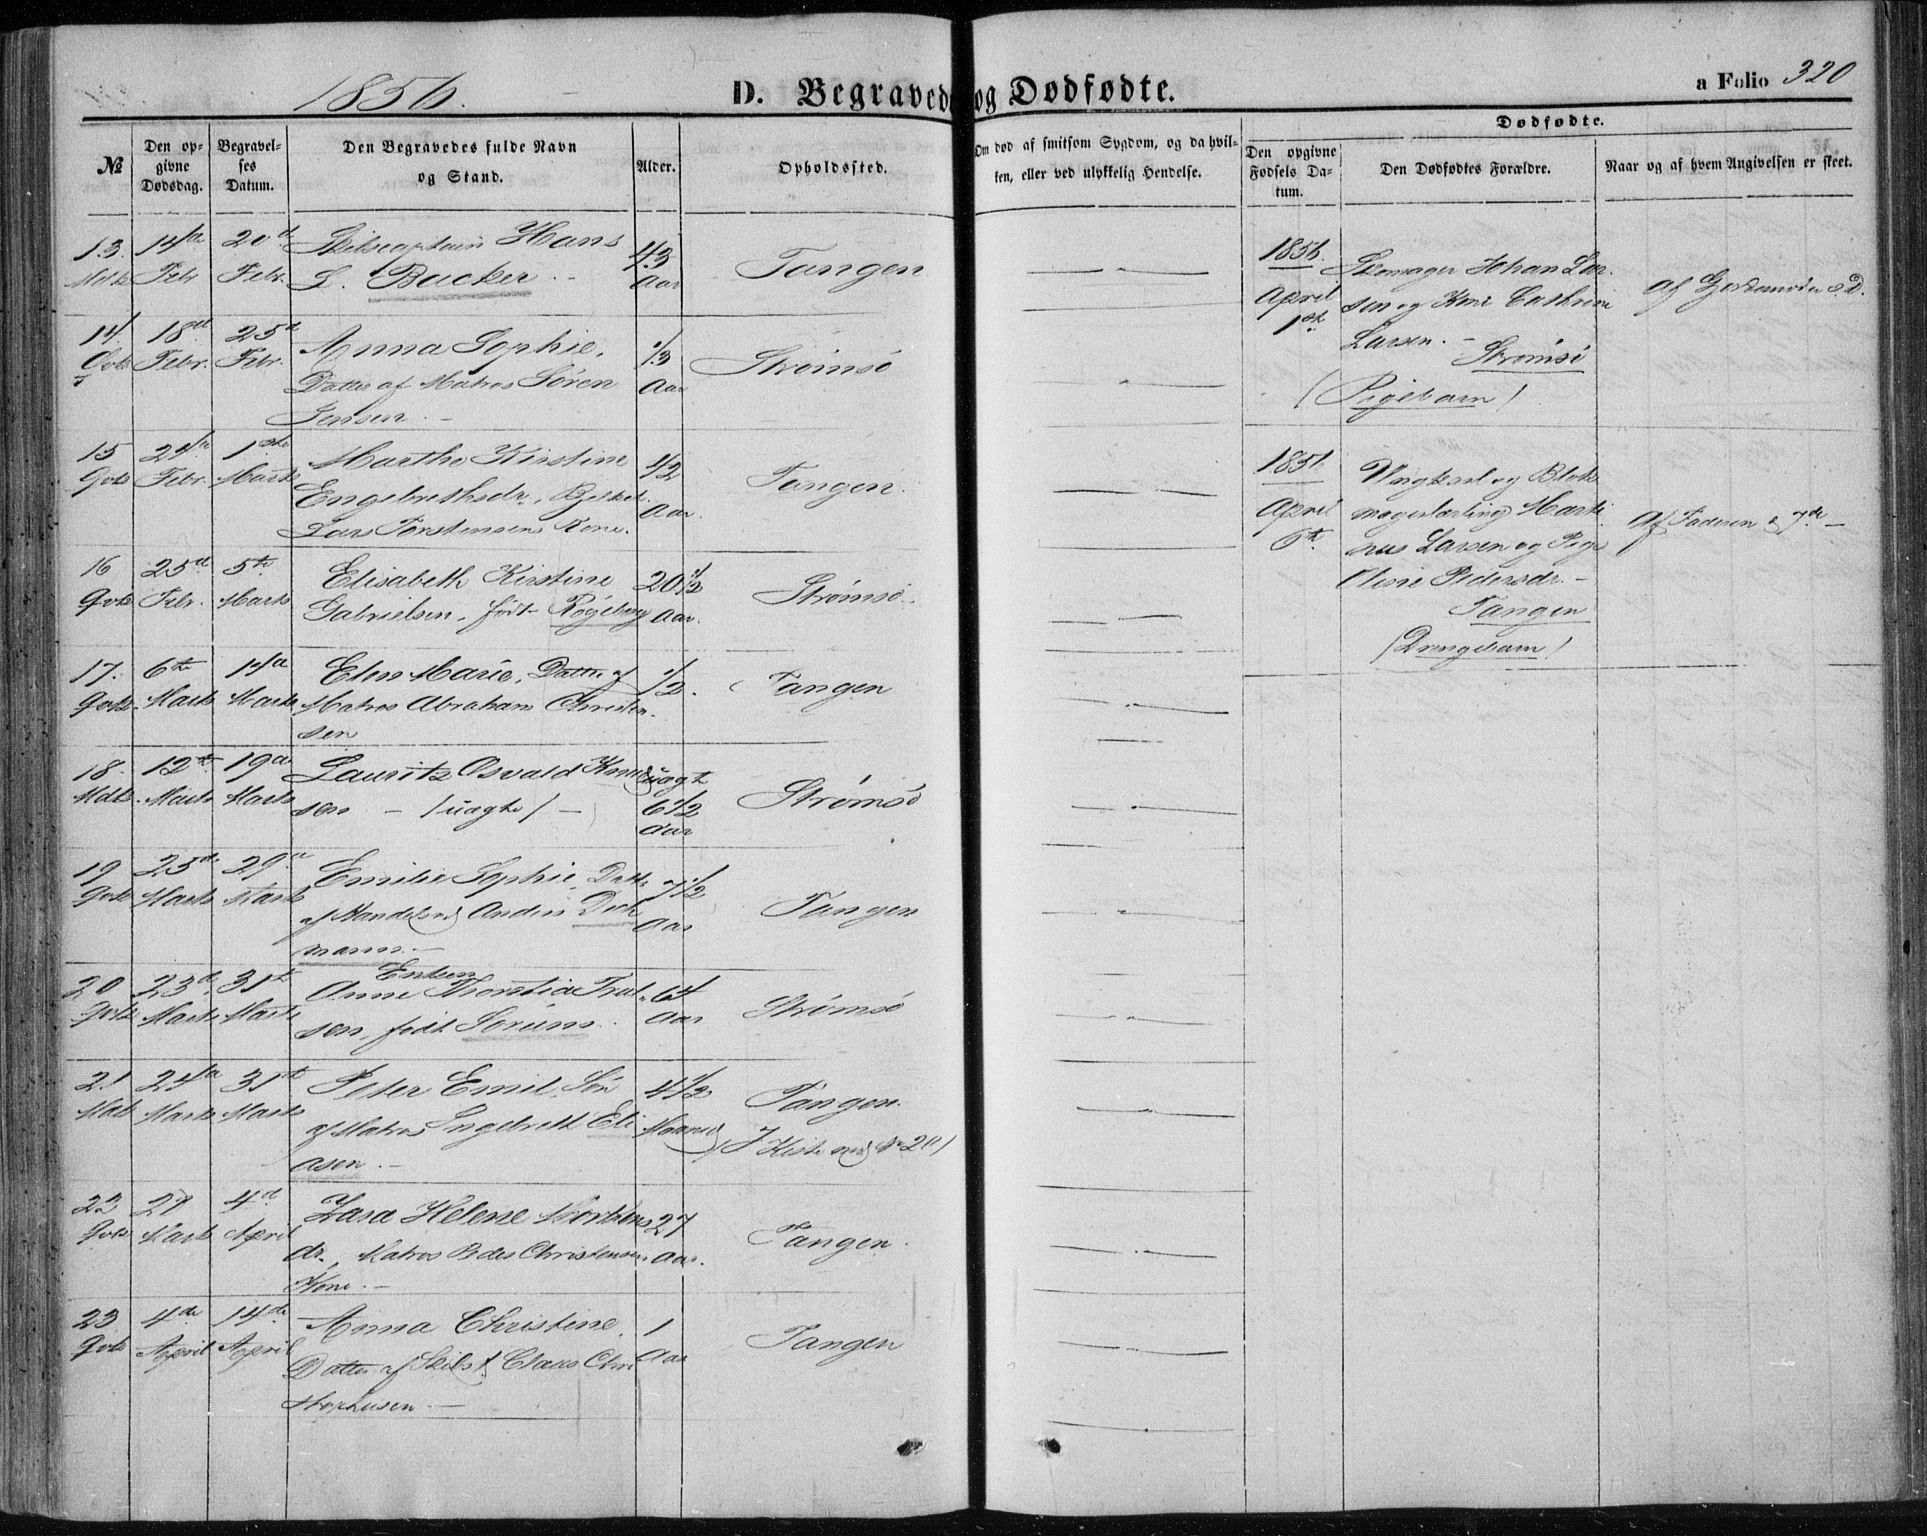 1856.
D. Begravede og Dødfødte.
a Folio 320
№
Den opgivne Dødsdag.
Begravelses Datum.
Den Begravedes fulde Navn og Stand.
Alder.
Opholdssted.
Om død af smitsom Sygdom, og da hvilken, eller ved ulykkelig Hendelse.
Dødfødte.
Den opgivne Fødsels Datum.
Den Dødfødtes Forældre.
Naar og af hvem Angivelsen er skeet.
13. 14de 20de Skibscaptain Hans 43
Mdk Febr Febr. L. Backer. Aar Tangen
14. 18de 25de Anna Sophie, 1/3
Qvk Febr. Febr. Datter af Matros Søren Aar Strømsø
Jensen.
15 24de 1ste Marthe Kirstine 42
Qvk Febr. Marts Engebrethsdr, Aar. Tangen.
Lars Torstensens Kone.
16 25de 5te Elisabeth Kirstine 20 1/2
Qvk Febr. Marts Gabrielsen, født Røgeberg Aar. Strømsø.
17. 6te 14de Elen Marie, Datter af 1/2.
Qvk. Marts Marts Matros Abraham Christen Tangen
sen
18. 12te 19de Lauritz Osvald uægte
Mdk. Marts Marts sen - /uægte/ - 6 1/2 Strømsø
Aar
19 25de 29de Emilie Sophie, Datter 7 1/2
Qvk Marts Marts af Handelsmd Anders Dich Aar Tangen
mann.
Enken
20 23de 31te Anne Thorstia Trul 64
Qvk Marts Marts sen, født Sørum. Aar Strømsø
21 24de 31te Peter Emil, Søn 4 1/2
Mdk Marts Marts af Matros Engebreth Eli Maaned Tangen.
asen. /I Kiste med № 20/
22 28 4de Helene 27
Qvk Marts April dr, Matros Peder Christensens Aar. Tangen.
Kone.
23 4de 14de Anna Christine, 1
Qvk April April Datter af Skibs Claus Chri Aar Tangen
stophersen.
1856. Skomager Johan Lar
April sen og Kone Cathrine Af Gjordemoder s. D.
1ste Larsen. -
Strømsø
/Pigebarn/
1856 Ungkarl og Blok
April magerlærling Marti Af Faderen 7de
6te nus Larsen og Pige
Oline Pedersdr. -
Tangen
/Drengebarn/